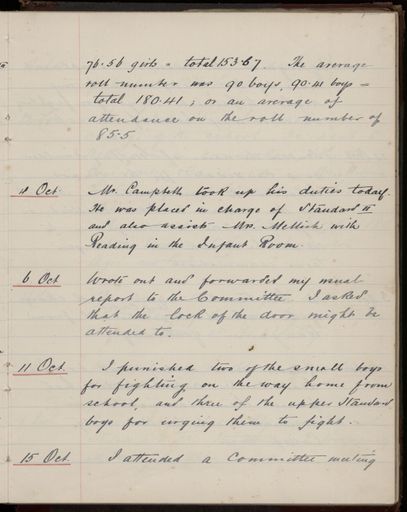 76.56 girls = total 153.67. The average
roll number was 90 boys, 90.41 boys =
total 180.41; or an average of
attendance on the roll number of
85.5
4 Oct. Mr. Campbell took up his duties today.
He was placed in charge of Standard II
and also assists Mrs. Mellish with
Reading in the Infant Room.
6 Oct Wrote out and forwarded my usual
report to the Committee. I asked
that the lock of the door might be
attended to.
11 Oct. I punished two of the small boys
for fighting on the way home from
school, and three of the upper Standard
boys for urging them to fight.
15 Oct. I attended a Committee meeting